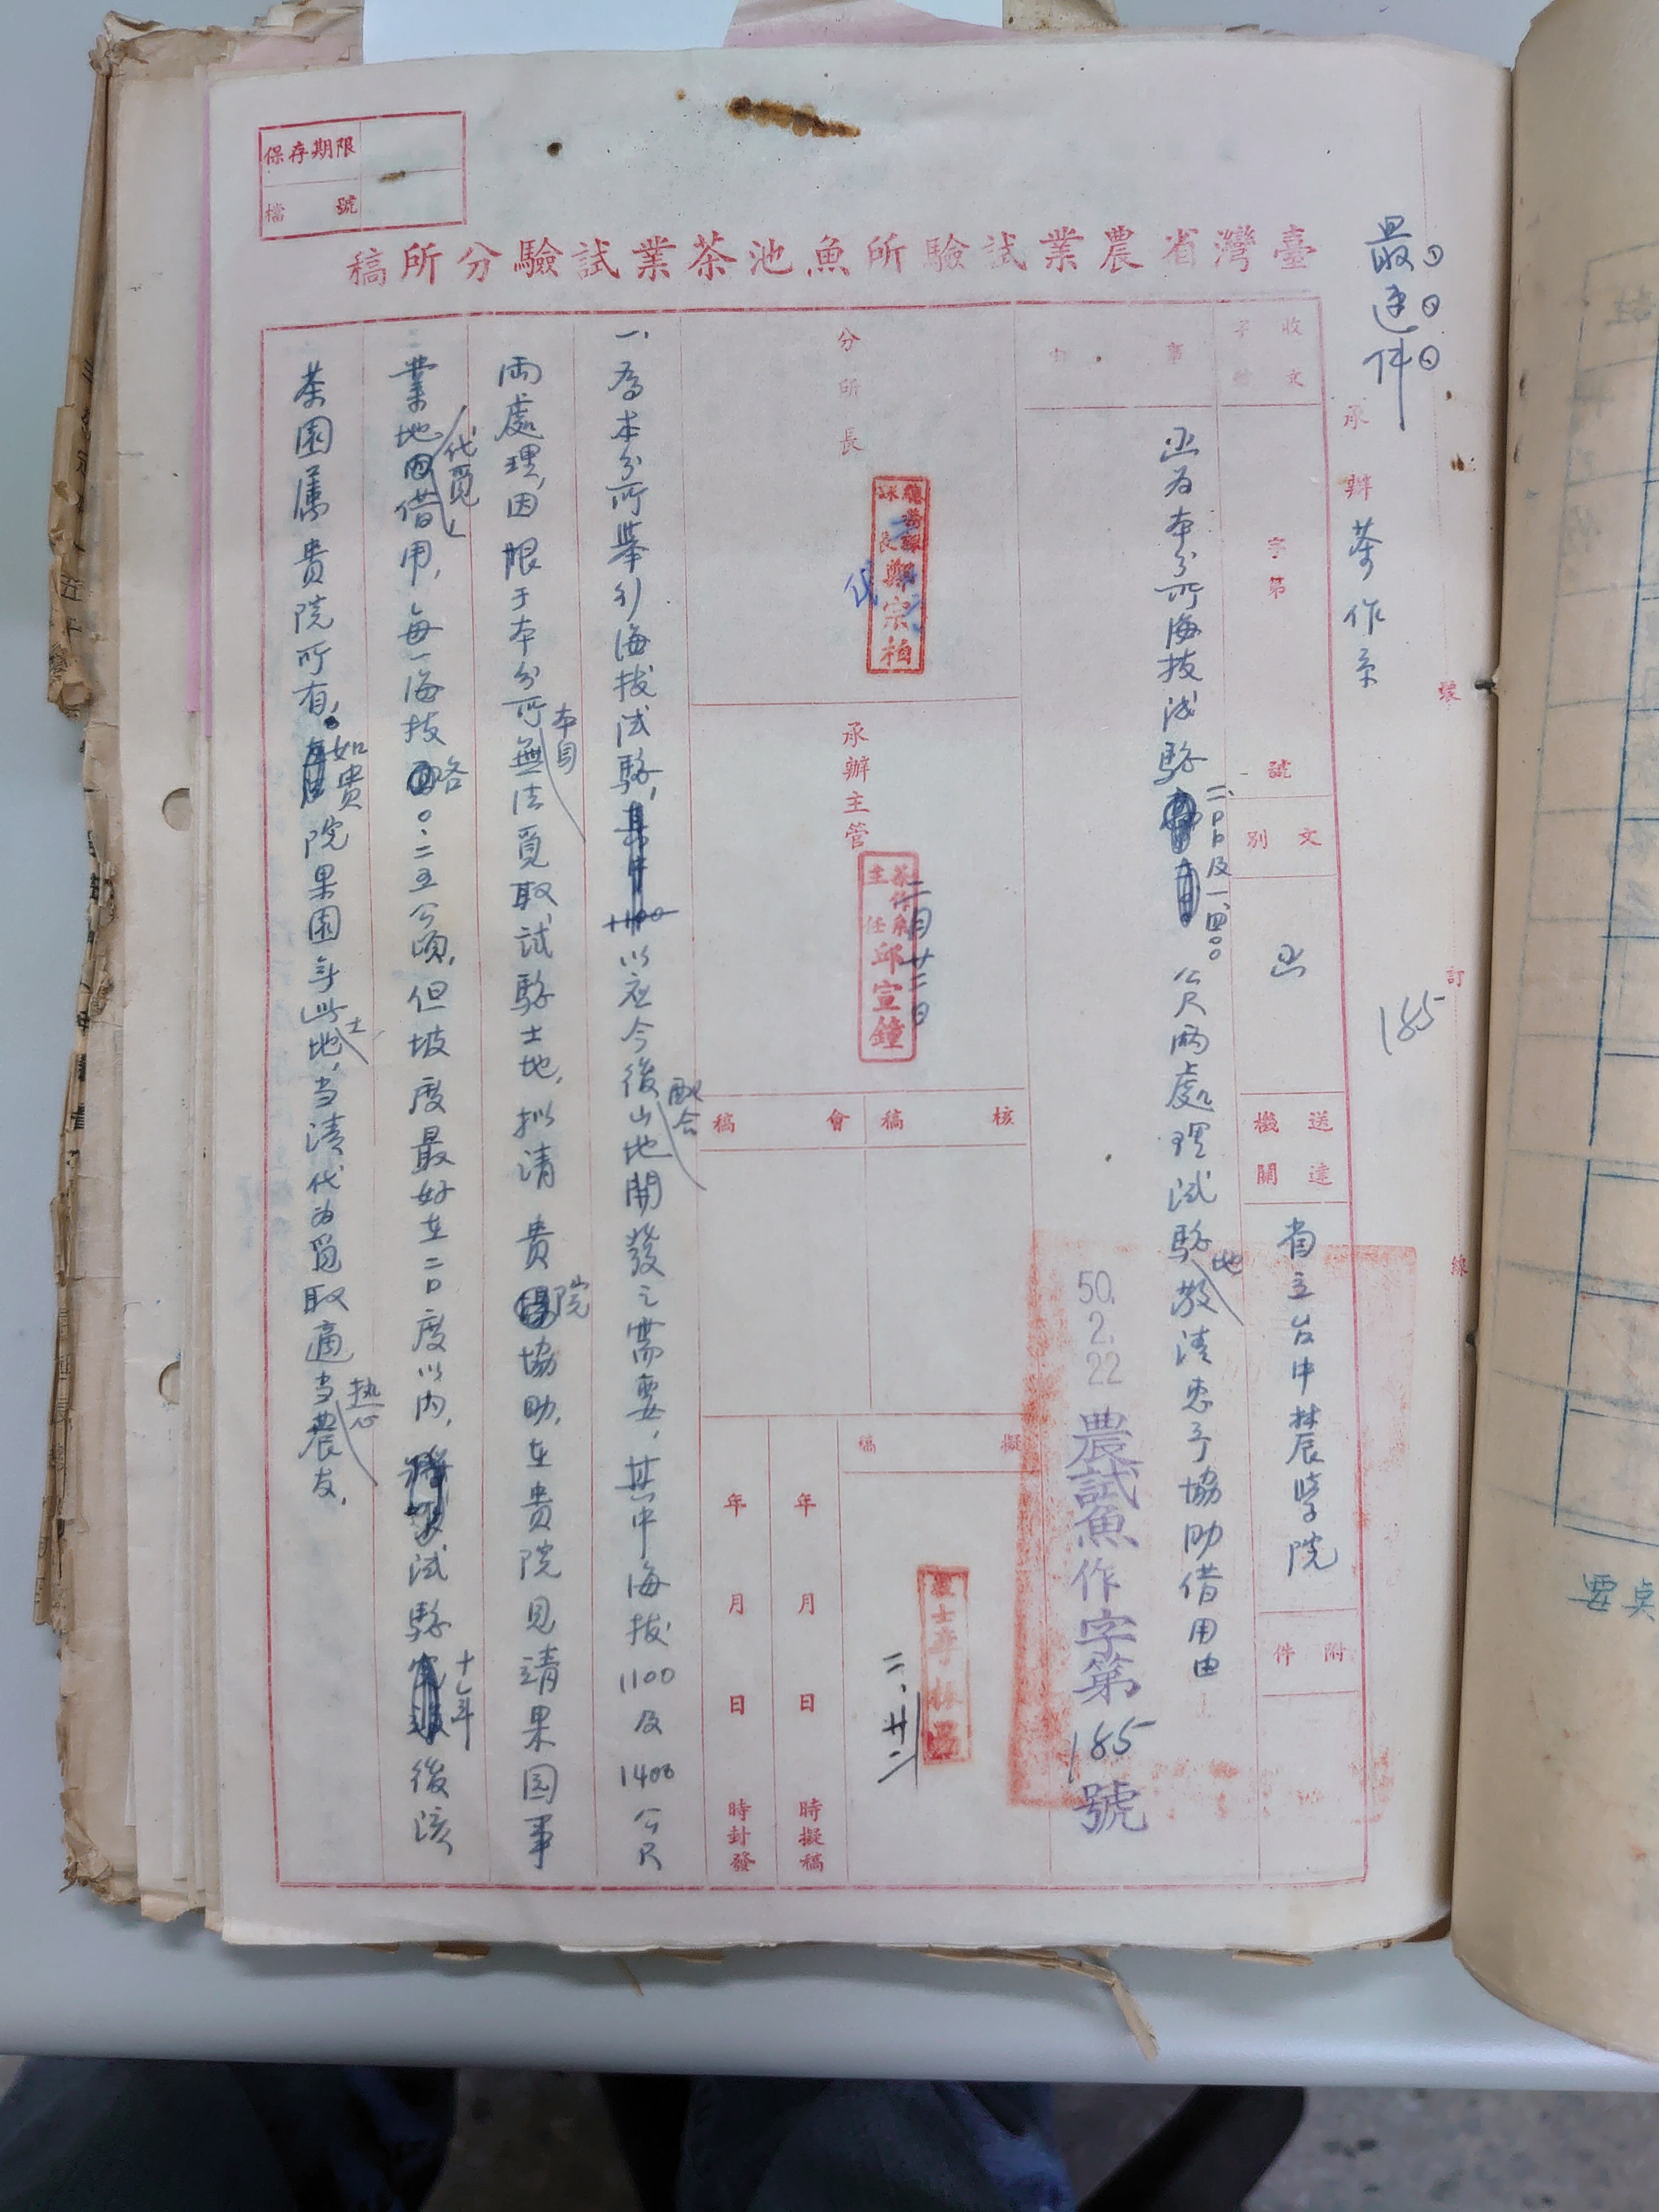 保存期限
檔號
臺灣省農業試驗所魚池茶業試驗分所稿
最速件
承辦 茶作系
185
裝
訂
線
收文 字第 號
文別 函
送達機關 省立台中農學院
附件
事由
函為本分所海拔試驗一、一〇〇及一、四〇〇公尺兩處理試驗地敬請惠予協助借用由
50. 2. 22
農試魚作字第185號
分所長
鄭宗柏
代
承辦主管
茶作系主任邱宣鐘
二月廿二日
核稿
會稿
擬稿
二、廿二
年 月 日 時擬稿
年 月 日 時封發
一、為本分所舉行海拔試驗，以应今後配合山地開發之需要，其中海拔1100及1400公尺
兩處理，因限于本分所本身無法覓取試驗土地，拟請 貴院協助，在貴院見靖果园事
業地代覓借用，每一海拔畧〇、二五公頃，但坡度最好在二〇度以內，試驗十七年後該
茶園屬貴院所有。如貴院果園無此土地，当請代为覓取適当热心農友，